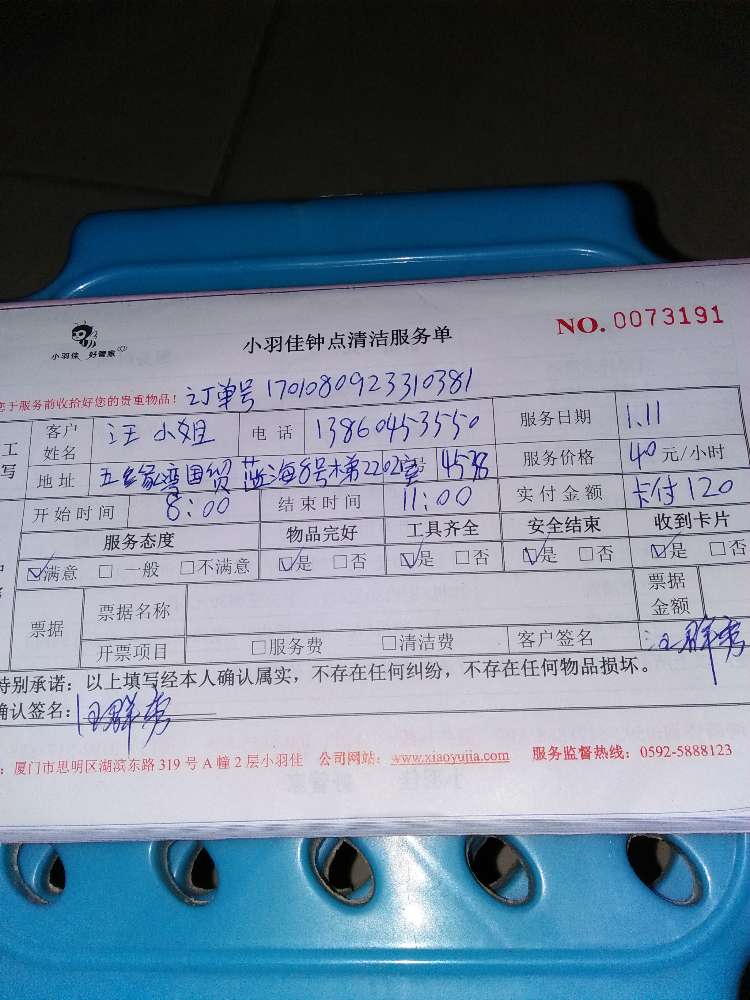 小羽佳 好管家
小羽佳钟点清洁服务单
NO. 0073191
您于服务前收拾好您的贵重物品！ 订单号 1701080923310381
工 客户姓名 汪小姐 电话 13860453550 服务日期 1.11
写 地址 五缘湾国贸 蓝海8号梯2202室 服务价格 40元/小时
开始时间 8:00 结束时间 11:00 实付金额 卡付120
服务态度 物品完好 工具齐全 安全结束 收到卡片
☑满意 □一般 □不满意 ☑是 □否 ☑是 □否 ☑是 □否 ☑是 □否
票据 票据名称 票据金额
开票项目 □服务费 □清洁费 客户签名 汪群秀
特别承诺：以上填写经本人确认属实，不存在任何纠纷，不存在任何物品损坏。
确认签名：汪群秀
：厦门市思明区湖滨东路319号A幢2层小羽佳 公司网站：www.xiaoyujia.com 服务监督热线：0592-5888123